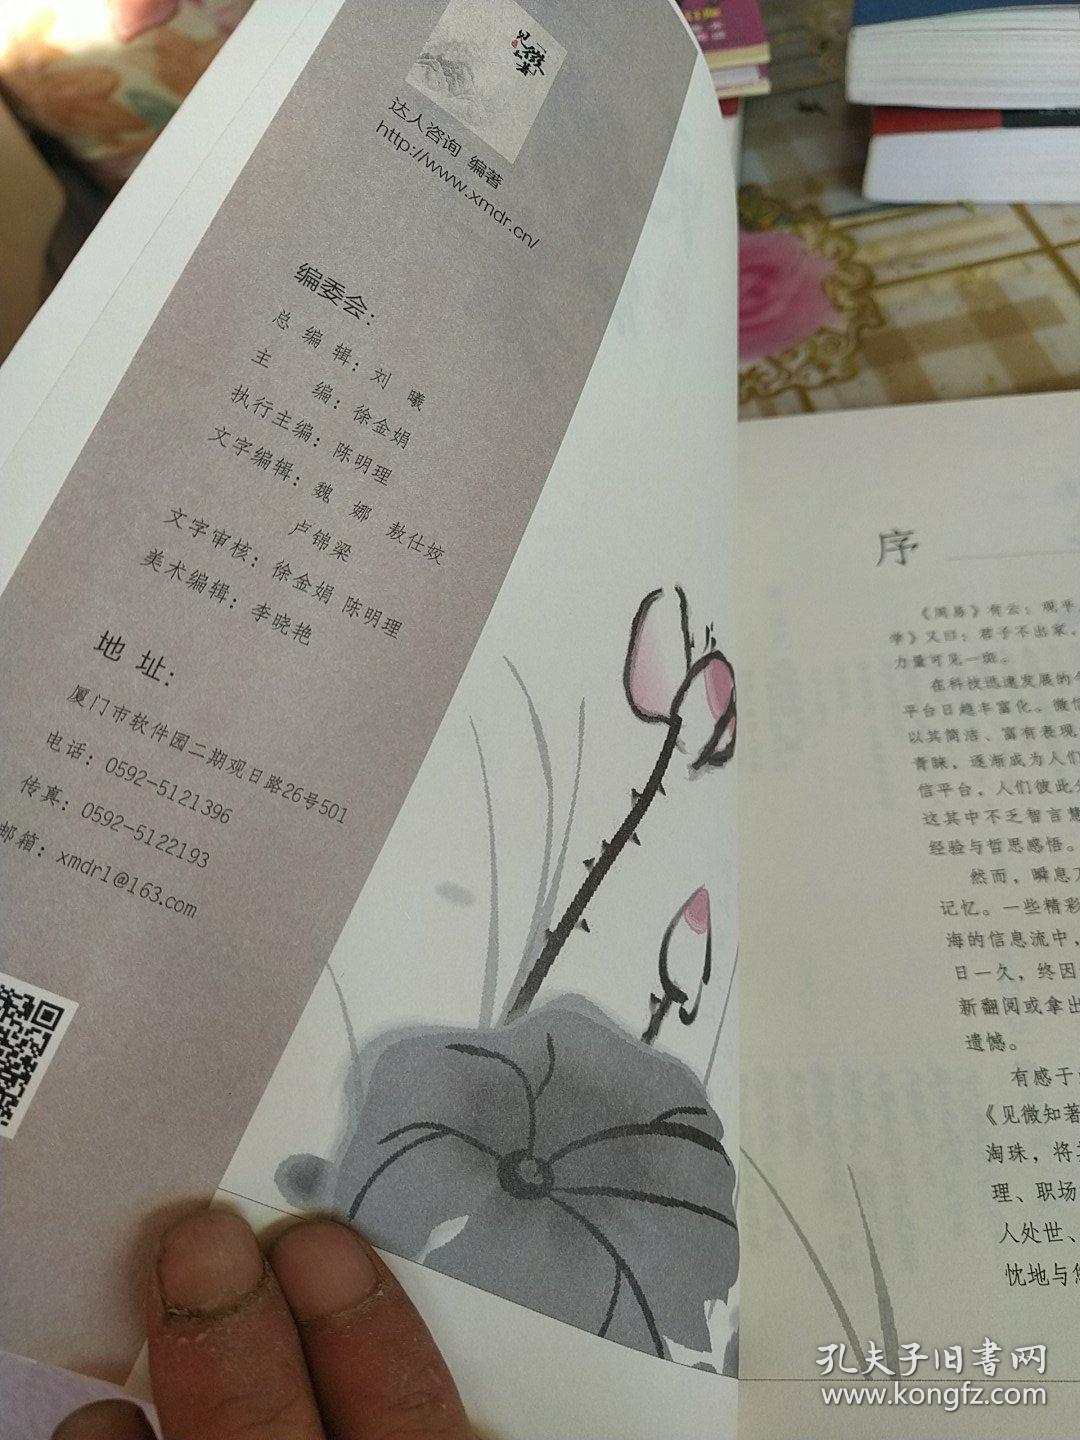 见微知著
达人咨询 编著
http://www.xmdr.cn/
编委会：
总 编 辑：刘 曦
主 编：徐金娟
执行主编：陈明理
文字编辑：魏 娜 敖仕姣
卢锦梁
文字审核：徐金娟 陈明理
美术编辑：李晓艳
地 址：
厦门市软件园二期观日路26号501
电话：0592-5121396
传真：0592-5122193
邮箱：xmdr1@163.com
序
《周易》有云：观乎
学》又曰：君子不出家，
力量可见一斑。
在科技迅速发展的今
平台日趋丰富化。微信
以其简洁、富有表现
青睐，逐渐成为人们
信平台，人们彼此分
这其中不乏智言慧
经验与哲思感悟。
然而，瞬息万
记忆。一些精彩
海的信息流中，
日一久，终因
新翻阅或拿出
遗憾。
有感于
《见微知著
淘珠，将
理、职场
人处世、
忱地与您
孔夫子旧书网
www.kongfz.com